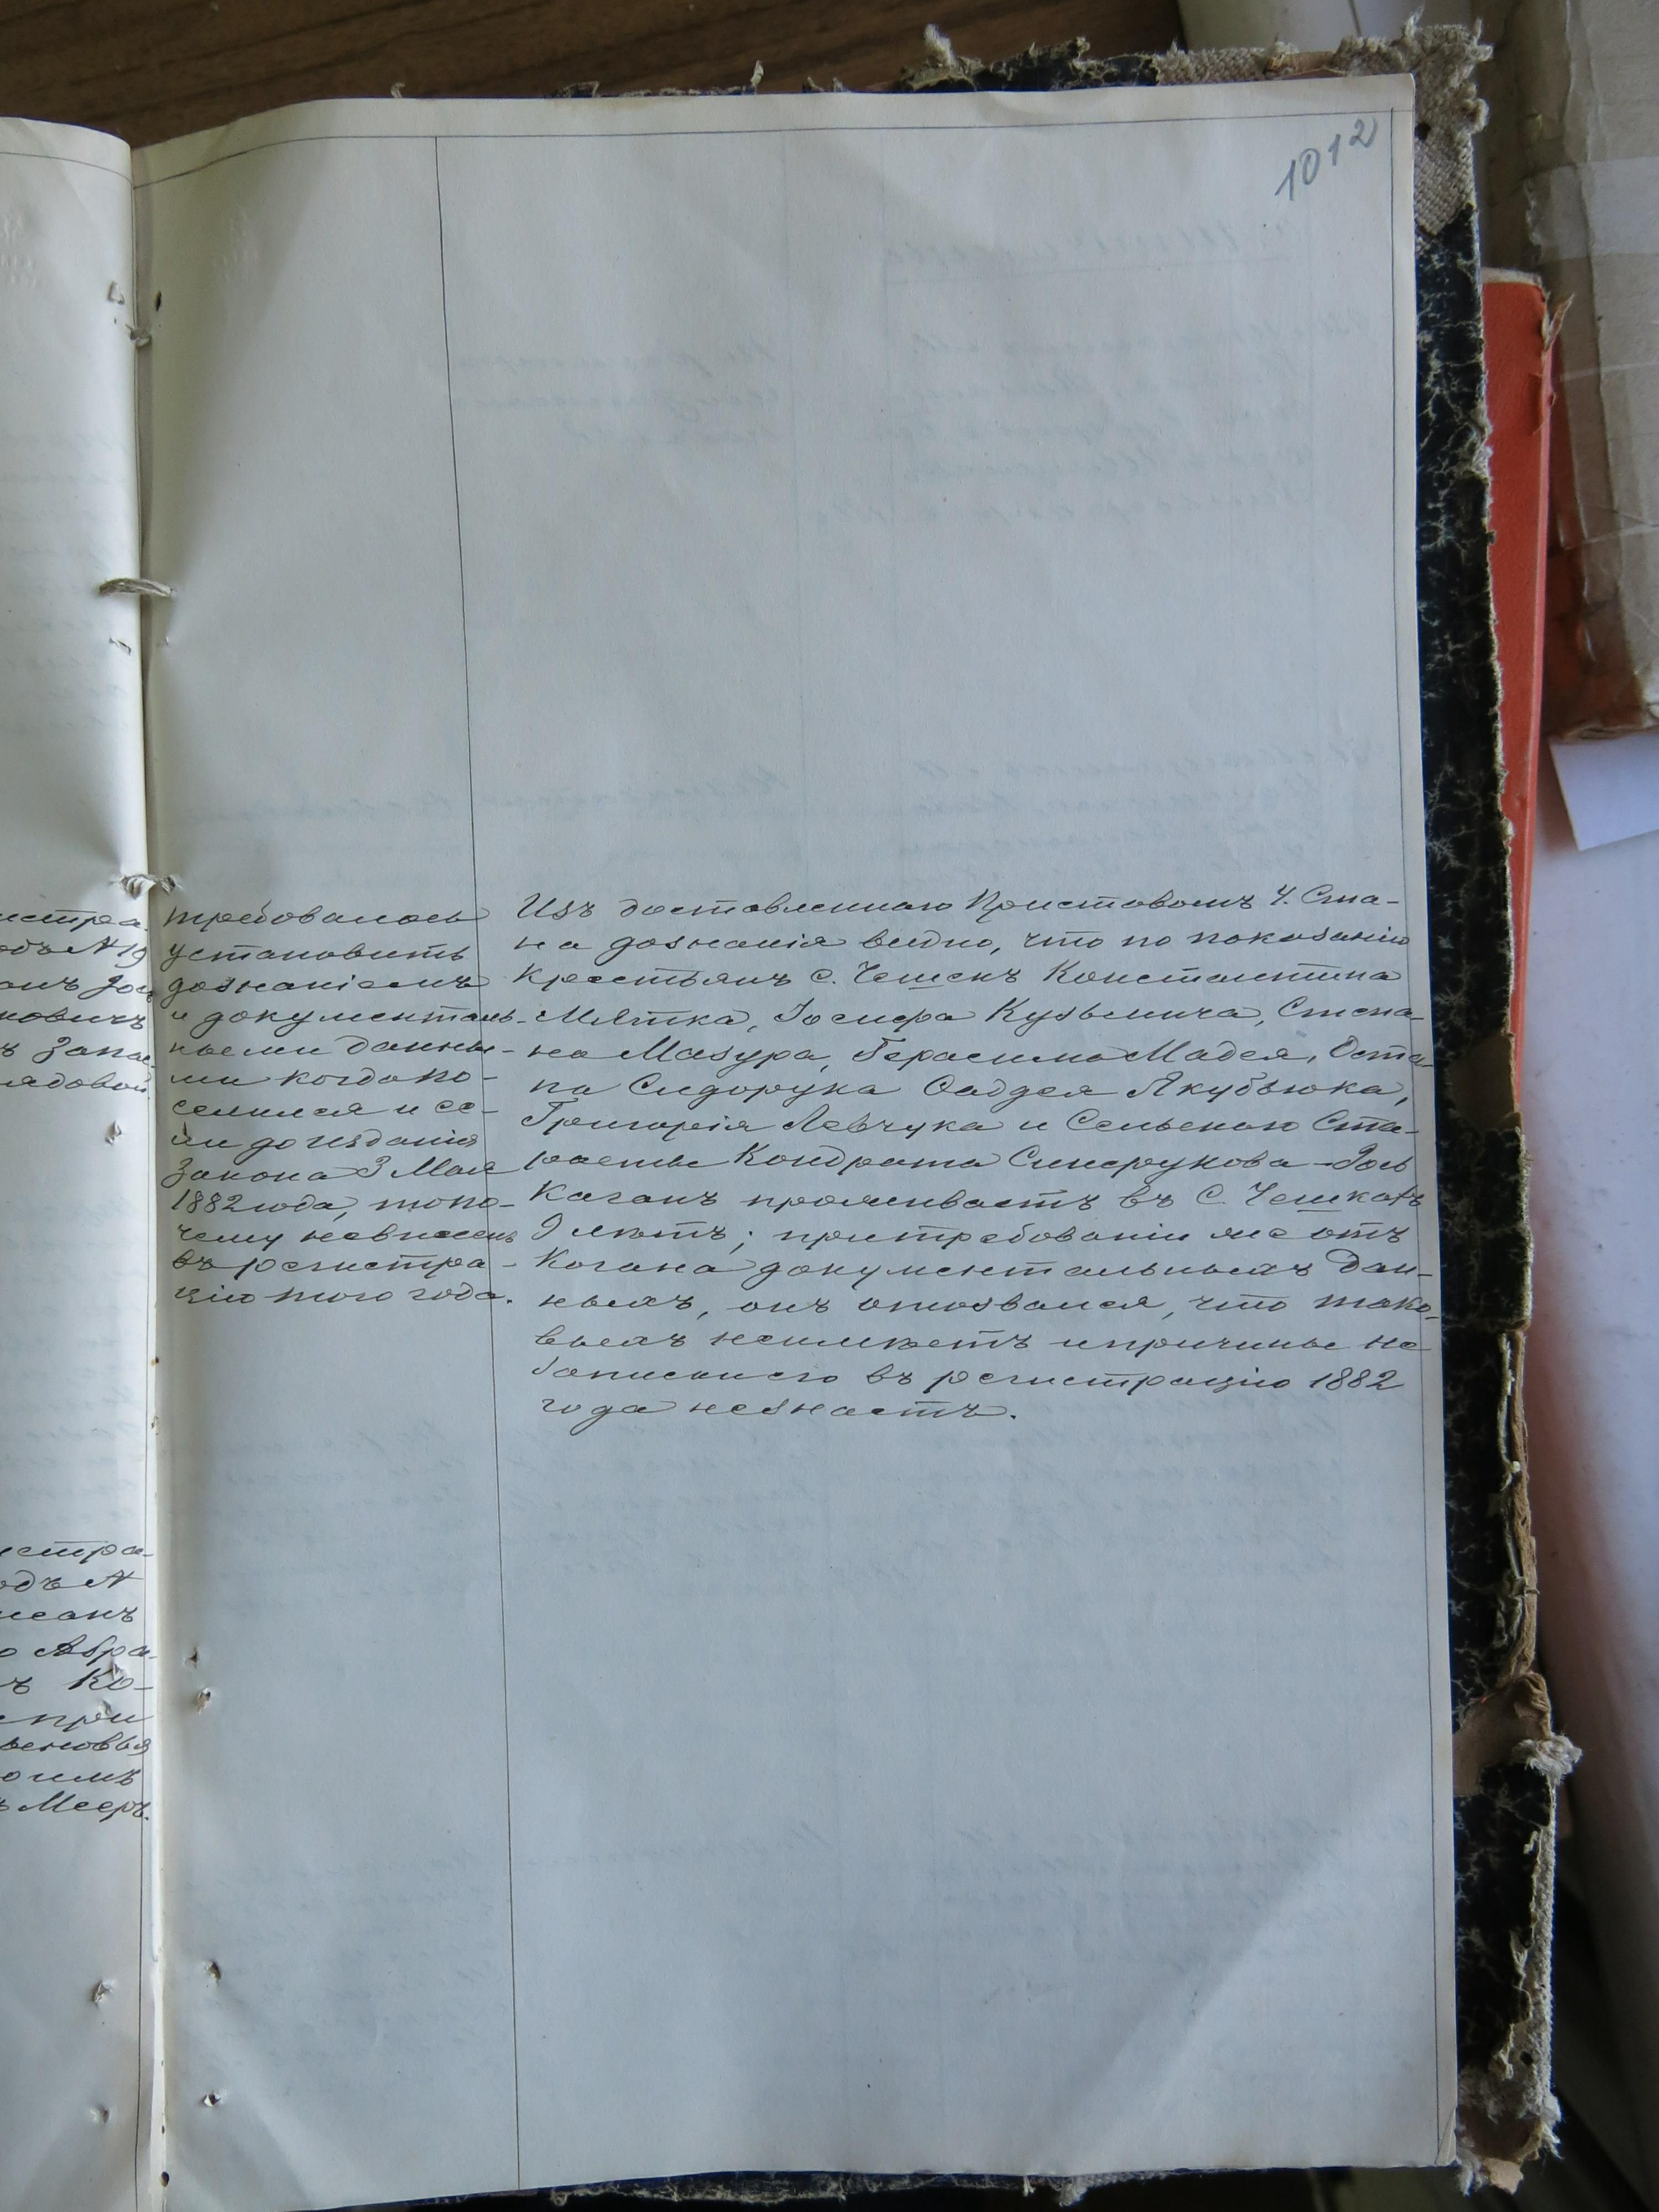 1012
истра-
одъ N 19
анъ Гос
новичъ
ъ Запас
рядовой
истра-
одъ N
исанъ
о Абра-
ъ Ко-
при
еновья
оимъ
ъ Мееръ.
требовалось
установить
дознаніемъ
и документаль-
ными данны-
ми когда по-
селился и ес-
ли до изданія
Закона 3 Мая
1882 года, то по-
чему невнесенъ
въ регистра-
цію того года.
Изъ доставленнаго Приставомъ 4. Ста-
на дознанія видно, что по показанію
крестьянъ с. Чешекъ Константина
Мятка, Іосифа Кузьмича, Степа-
на Мазура, Герасима Мадея, Оста-
па Сидорука Фаддея Якубюка,
Григорія Левчука и Сельскаго Ста-
росты Кондрата Снерукова -
Каганъ проживаетъ въ С. Чешкахъ
9 лѣтъ; при требованіи же отъ
Кагана документальныхъ дан-
ныхъ, онъ отозвался, что тако-
выхъ неимѣетъ и причины не-
записанія его въ регистрацію 1882
года незнаетъ.